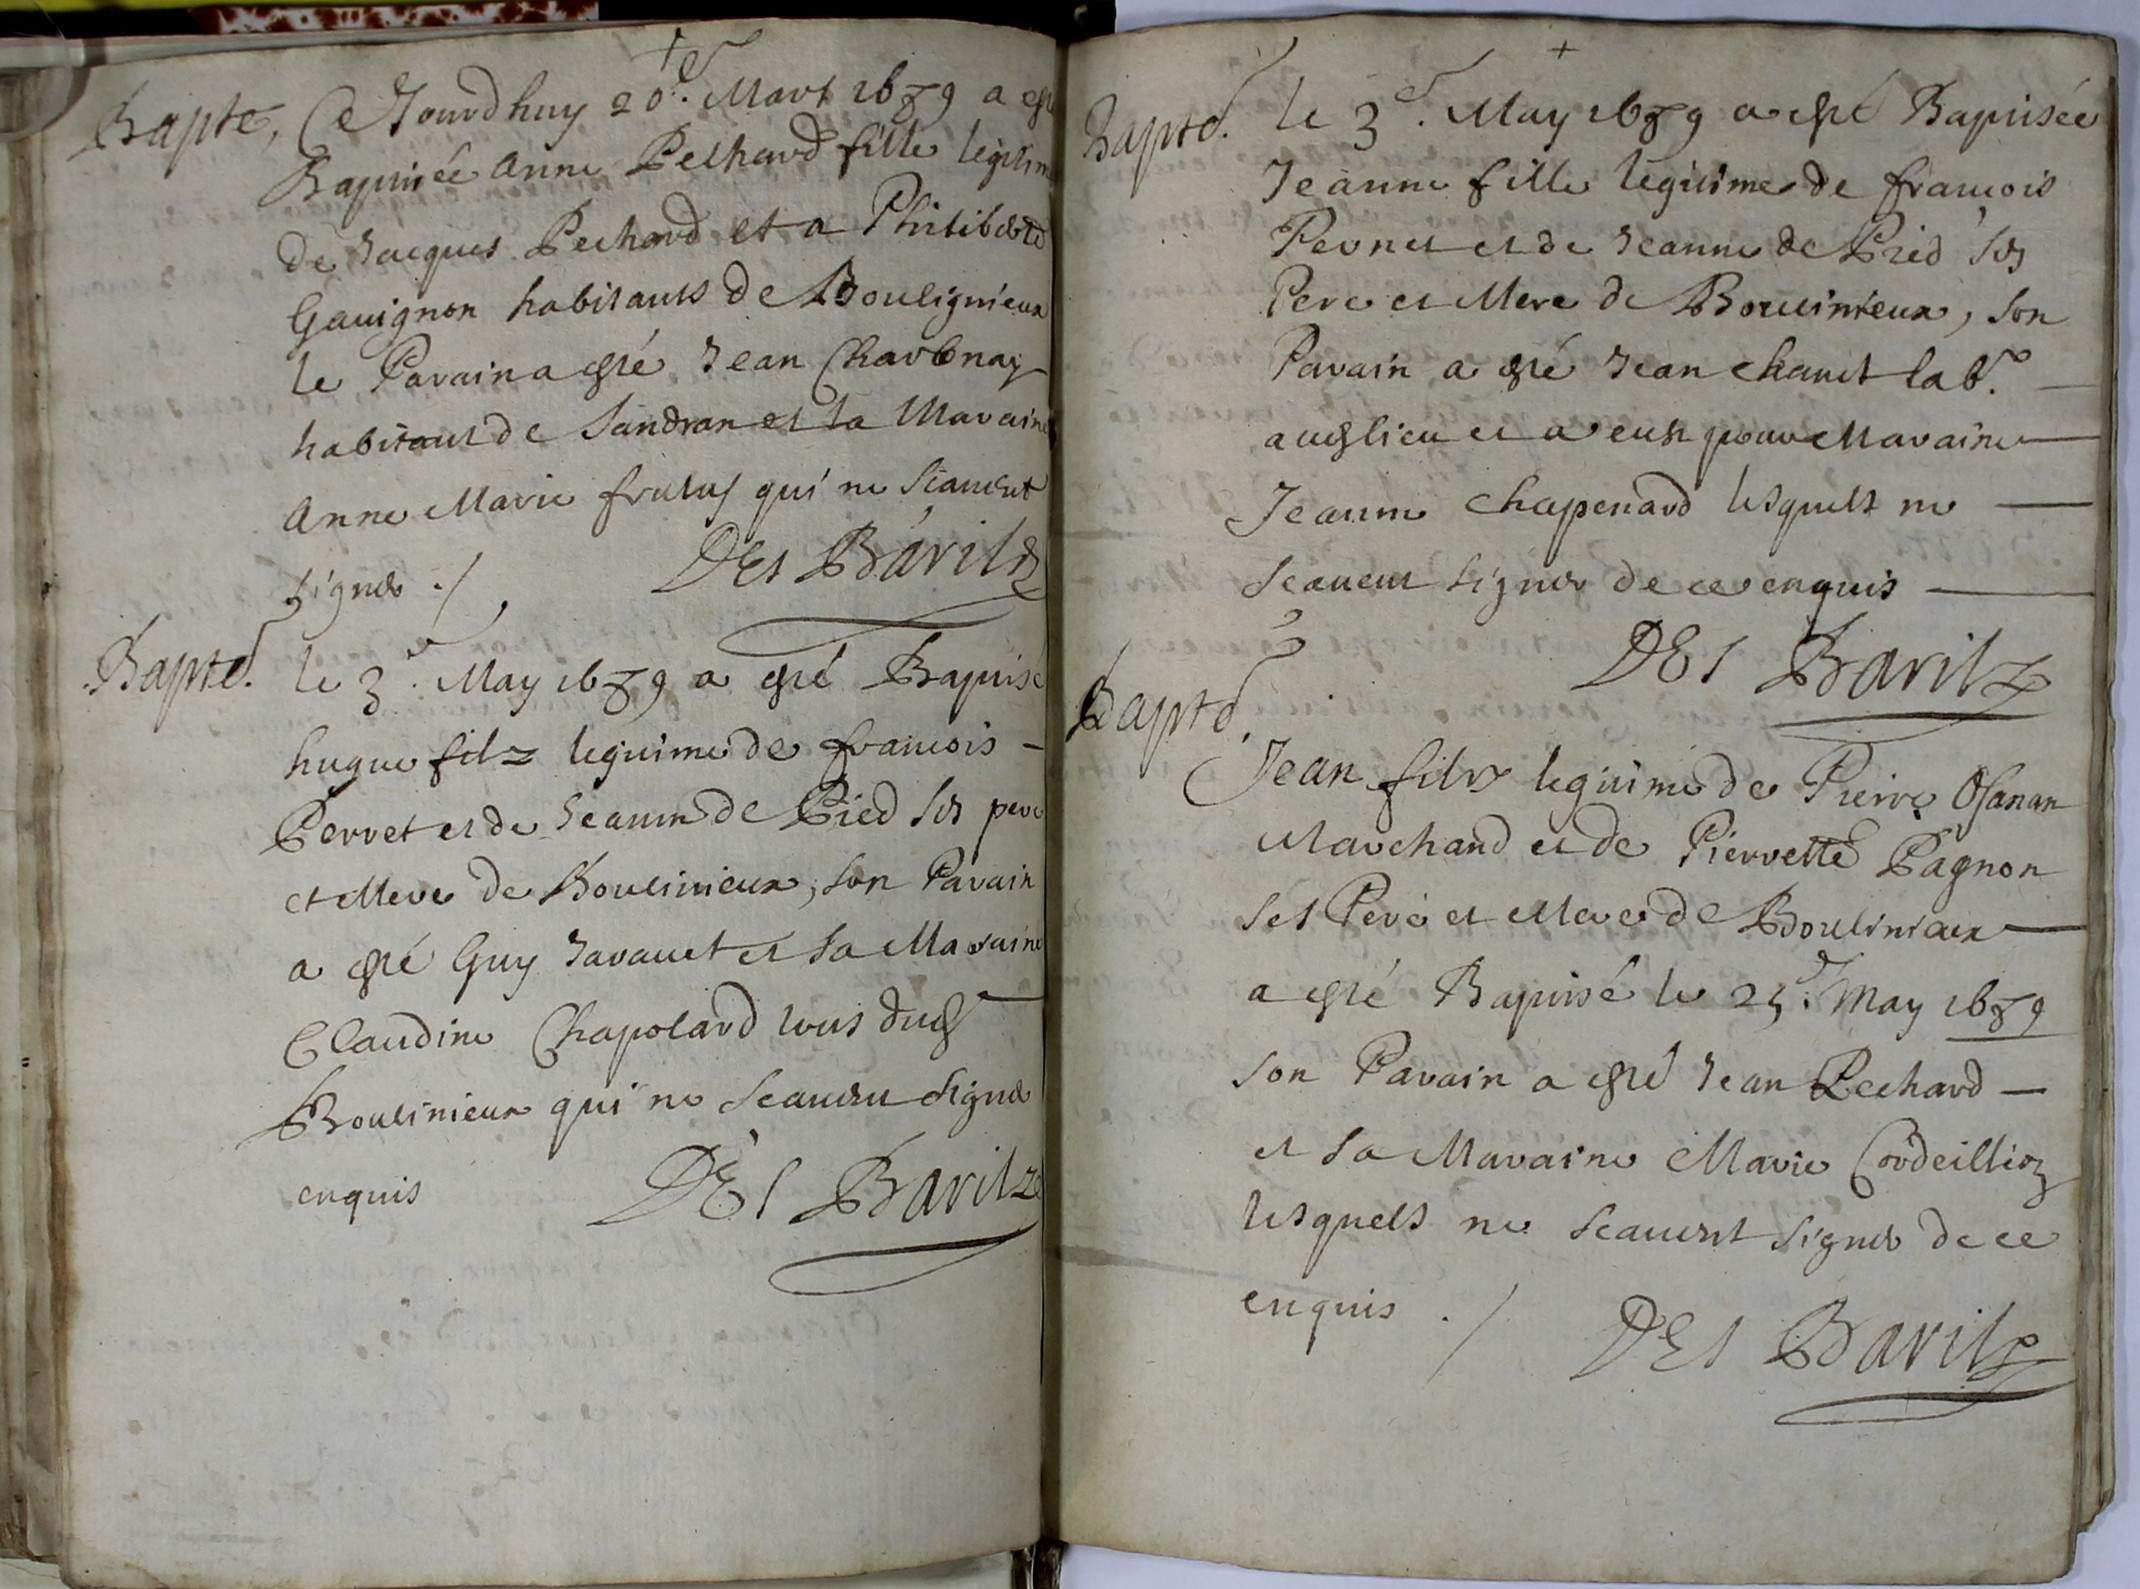 Bapte, Ce Jourdhuy 20e. Mars 1679 a esté
Baptisée Anne Pechard fille legitime
de Jacques Pechard et a Philiberte
Gauignon habitants de Boulignieux
le Parain a esté Jean Charbonay
habitant de Sandran et la Maraine
Anne Marie frutus qui ne scauent
signer ./ DEs Barilz
Bapte. le 3e. May 1679 a esté Baptisé
hugue filz legitime de francois -
Perret et de Jeanne de Pied ses pere
et Mere de Boulinieux, son Parain
a esté Guy Jarauet et sa Maraine
Claudine Chapolard tous dudt
Boulinieux qui ne scauent signer
enquis DEs Barilz
Bapte. le 3e. May 1679 a esté Baptisée
Jeanne fille legitime de francois
Perret et de Jeanne de Pied ses
Pere et Mere de Boulinieux, son
Parain a esté Jean Chanet labr.
audt lieu et a eust pour Maraine
Jeanne Chapenard lesquels ne
scauent signer de ce enquis
DEs Barilz
Bapte.
Jean filz legitime de Pierre Osanan
Marchand et de Pierrette Pagnon
ses Pere et Mere de Boulinieux
a esté Baptisé le 25e. May 1679
son Parain a esté Jean Pechard
et sa Maraine Marie Cordeillion
lesquels ne scauent signer de ce
enquis ./ DEs Barilz